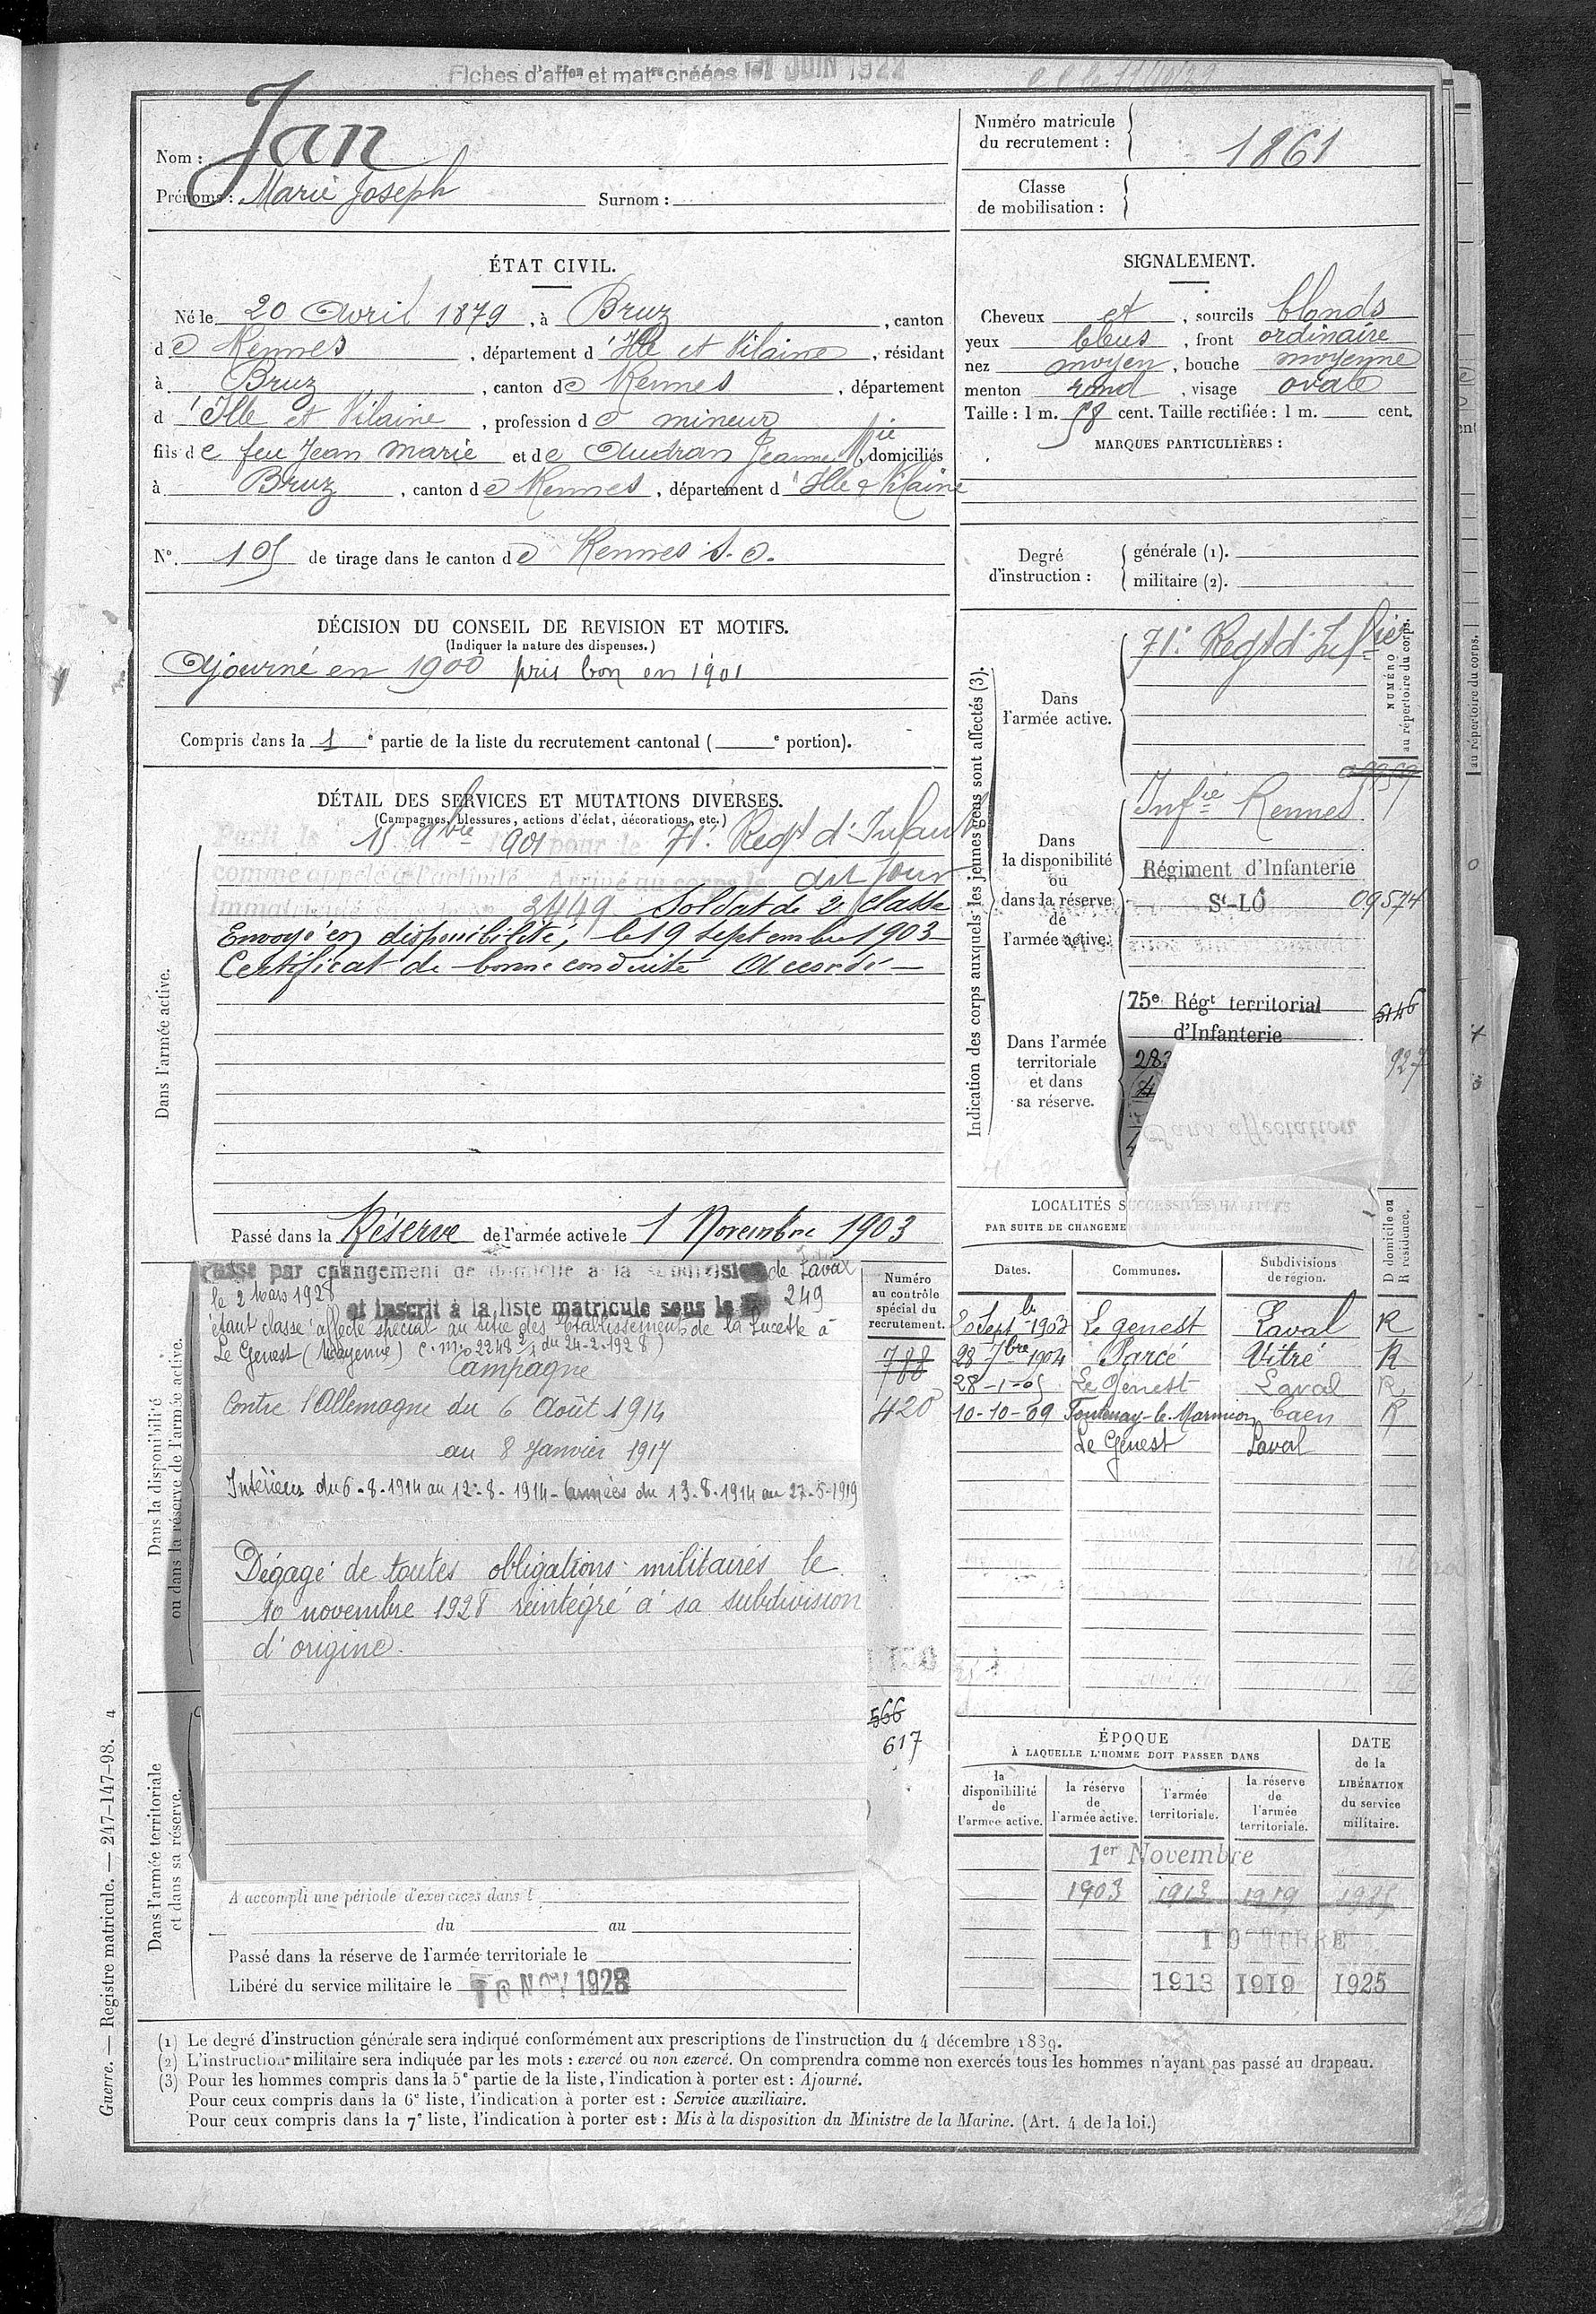 Fiches d'affon et matre créées le 1 JUIN 1922
Nom : Jan
Prénoms : Marie Joseph Surnom :
Numéro matricule
du recrutement : 1861
Classe
de mobilisation :
ÉTAT CIVIL.
Né le 20 Avril 1879, à Bruz, canton
de Rennes, département d'Ille et Vilaine, résidant
à Bruz, canton de Rennes, département
d'Ille et Vilaine, profession de mineur
fils de feu Jean Marie et de Audran Jeanne Mie, domiciliés
à Bruz, canton de Rennes, département d'Ille & Vilaine
N°. 105 de tirage dans le canton de Rennes S.O.
SIGNALEMENT.
Cheveux et, sourcils blonds
yeux bleus, front ordinaire
nez moyen, bouche moyenne
menton rond, visage ovale
Taille : 1 m. 58 cent. Taille rectifiée : 1 m. cent.
MARQUES PARTICULIÈRES :
Degré
d'instruction :
générale (1).
militaire (2).
DÉCISION DU CONSEIL DE REVISION ET MOTIFS.
(Indiquer la nature des dispenses.)
Ajourné en 1900 pris bon en 1901
Compris dans la 1e partie de la liste du recrutement cantonal ( e portion).
DÉTAIL DES SERVICES ET MUTATIONS DIVERSES.
(Campagnes, blessures, actions d'éclat, décorations, etc.)
Dans l'armée active.
Parti le 15 9bre 1901 pour le 71e Regt d'Infant
comme appelé à l'activité. Arrivé au corps le dit jour
Immatriculé 3449 Soldat de 2e classe
Envoyé en disponibilité, le 19 septembre 1903
Certificat de bonne conduite Accordé
Passé dans la Réserve de l'armée active le 1 Novembre 1903
Indication des corps auxquels les jeunes gens sont affectés (3).
NUMÉRO
au répertoire du corps.
Dans
l'armée active.
71e Regt d'Infie
Dans
la disponibilité
ou
dans la réserve
de
l'armée active.
Infie Rennes
Régiment d'Infanterie
St-LÔ 09574
Dans l'armée
territoriale
et dans
sa réserve.
75e Régt territorial
d'Infanterie
927
Sans affectation
Dans la disponibilité
ou dans la réserve de l'armée active.
Passé par changement de domicile à la subdivision de Laval
le 2 Mars 1928 et inscrit à la liste matricule sous le 249
étant classé affecté spécial au titre des Etablissements de la Lucette à
Le Genest (Mayenne) C.M. 2248 du 24-2-1928)
Campagne
Contre l'Allemagne du 6 Août 1914
au 8 Janvier 1917
Intérieur du 6-8-1914 au 12-8-1914 - Armées du 13-8-1914 au 27-5-1919
Dégagé de toutes obligations militaires le
10 novembre 1928 réintégré à sa subdivision
d'origine.
Numéro
au contrôle
spécial du
recrutement.
788
420
566
617
LOCALITÉS SUCCESSIVES HABITÉES
PAR SUITE DE CHANGEME
Dates. Communes. Subdivisions
de région.
D domicile ou
R résidence.
20 Septbre 1903 Le genest Laval R
28 7bre 1904 Parcé Vitré R
28-1-05 Le Genest Laval R
10-10-09 Fontenay-le-Marmion Caen R
Le Genest Laval
ÉPOQUE
À LAQUELLE L'HOMME DOIT PASSER DANS
la
disponibilité
de
l'armée active.
la réserve
de
l'armée active.
l'armée
territoriale.
la réserve
de
l'armée
territoriale.
DATE
de la
LIBÉRATION
du service
militaire.
1er Novembre
1903 1913 1919 1925
1 OCTOBRE
1913 1919 1925
Dans l'armée territoriale
et dans sa réserve.
A accompli une période d'exercices dans l
du au
Passé dans la réserve de l'armée territoriale le
Libéré du service militaire le 10 NOV 1928
(1) Le degré d'instruction générale sera indiqué conformément aux prescriptions de l'instruction du 4 décembre 1889.
(2) L'instruction militaire sera indiquée par les mots : exercé ou non exercé. On comprendra comme non exercés tous les hommes n'ayant pas passé au drapeau.
(3) Pour les hommes compris dans la 5e partie de la liste, l'indication à porter est : Ajourné.
Pour ceux compris dans la 6e liste, l'indication à porter est : Service auxiliaire.
Pour ceux compris dans la 7e liste, l'indication à porter est : Mis à la disposition du Ministre de la Marine. (Art. 4 de la loi.)
Guerre. — Registre matricule. — 247-147-98. 4
au répertoire du corps.